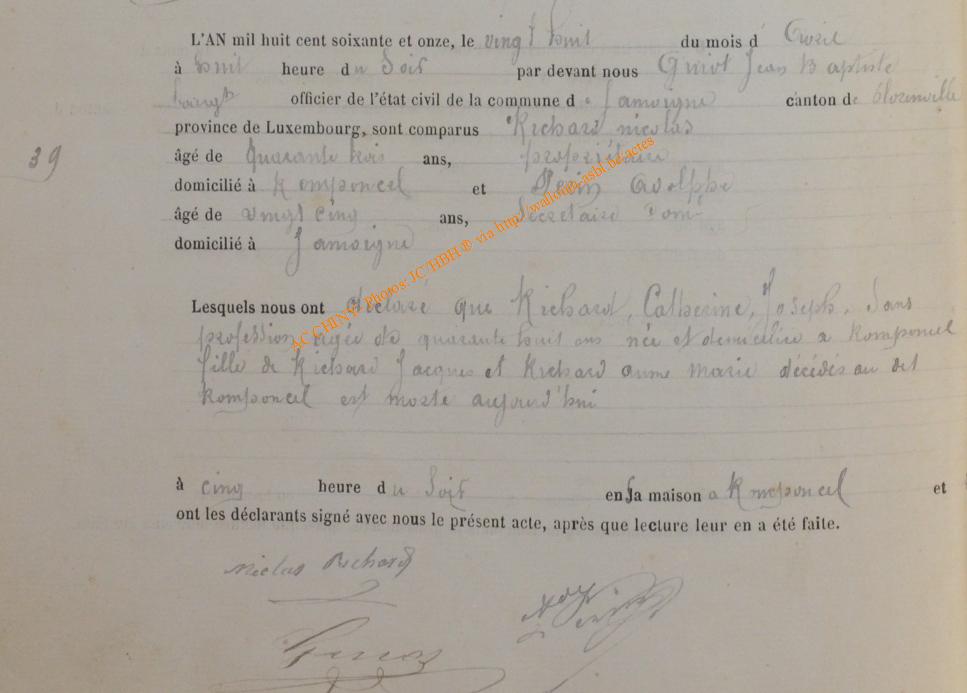 L'AN mil huit cent soixante et onze, le vingt huit du mois d'Avril
à huit heure du Soir par devant nous Guiot Jean Baptiste
officier de l'état civil de la commune de Jamoigne canton de Florenville
province de Luxembourg, sont comparus Richard nicolas
39
âgé de quarante trois ans, propriétaire
domicilié à Romponcel et Adolphe
âgé de vingt cinq ans, Secretaire Com
domicilié à Jamoigne
AC CHINY Photos: JC/HBH ® via http://wallonia-asbl.be/actes
Lesquels nous ont déclaré que Richard, Catherine, Joseph, Sans
profession agée de quarante huit ans née et domiciliée a Romponcel
fille de Richard Jacques et Richard anne Marie décédés au dit
Romponcel est morte aujourd'hui
à cinq heure du Soir en sa maison a Romponcel et
ont les déclarants signé avec nous le présent acte, après que lecture leur en a été faite.
nicolas Richard